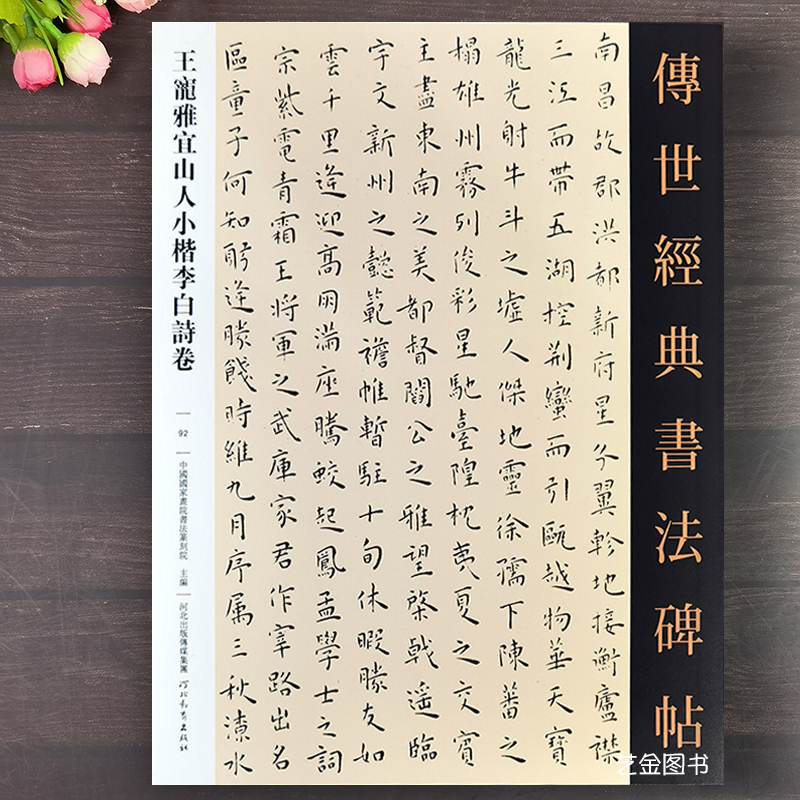 傳世經典書法碑帖
南昌故郡洪都新府星分翼軫地接衡廬襟
三江而帶五湖控荆蠻而引甌越物華天寶
龍光射牛斗之墟人傑地靈徐孺下陳蕃之
榻雄州霧列俊彩星馳臺隍枕夷夏之交賓
主盡東南之美都督閻公之雅望棨戟遥臨
宇文新州之懿範襜帷暫駐十旬休暇勝友如
雲千里逢迎高朋滿座騰蛟起鳳孟學士之詞
宗紫電青霜王將軍之武庫家君作宰路出名
區童子何知躬逢勝餞時維九月序属三秋潦水
王寵雅宜山人小楷李白詩卷
92
中國國家畫院書法篆刻院 主編
河北出版傳媒集團 河北教育出版社
艺金图书